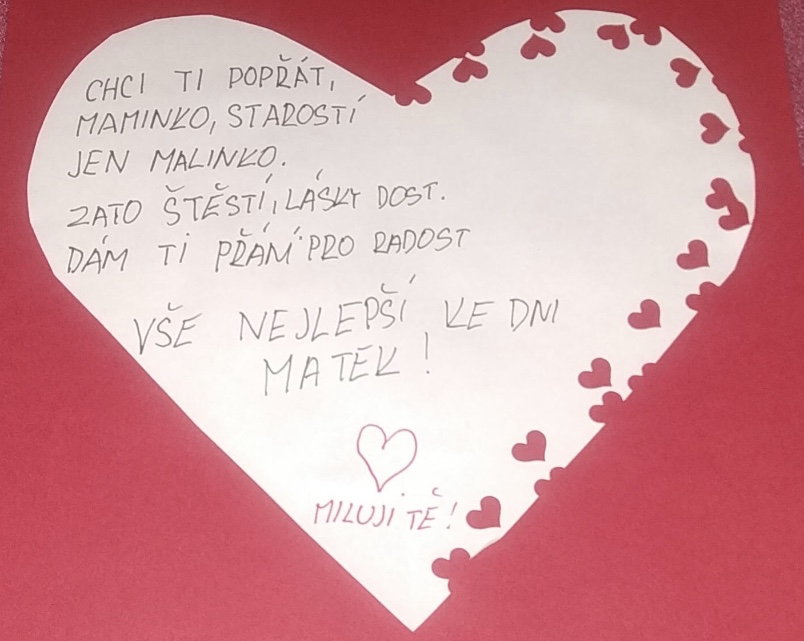 CHCI TI POPŘÁT,
MAMINKO, STAROSTÍ
JEN MALINKO.
ZATO ŠTĚSTÍ, LÁSKY DOST.
DÁM TI PŘÁNÍ PRO RADOST
VŠE NEJLEPŠÍ KE DNI
MATEK!
MILUJI TĚ!